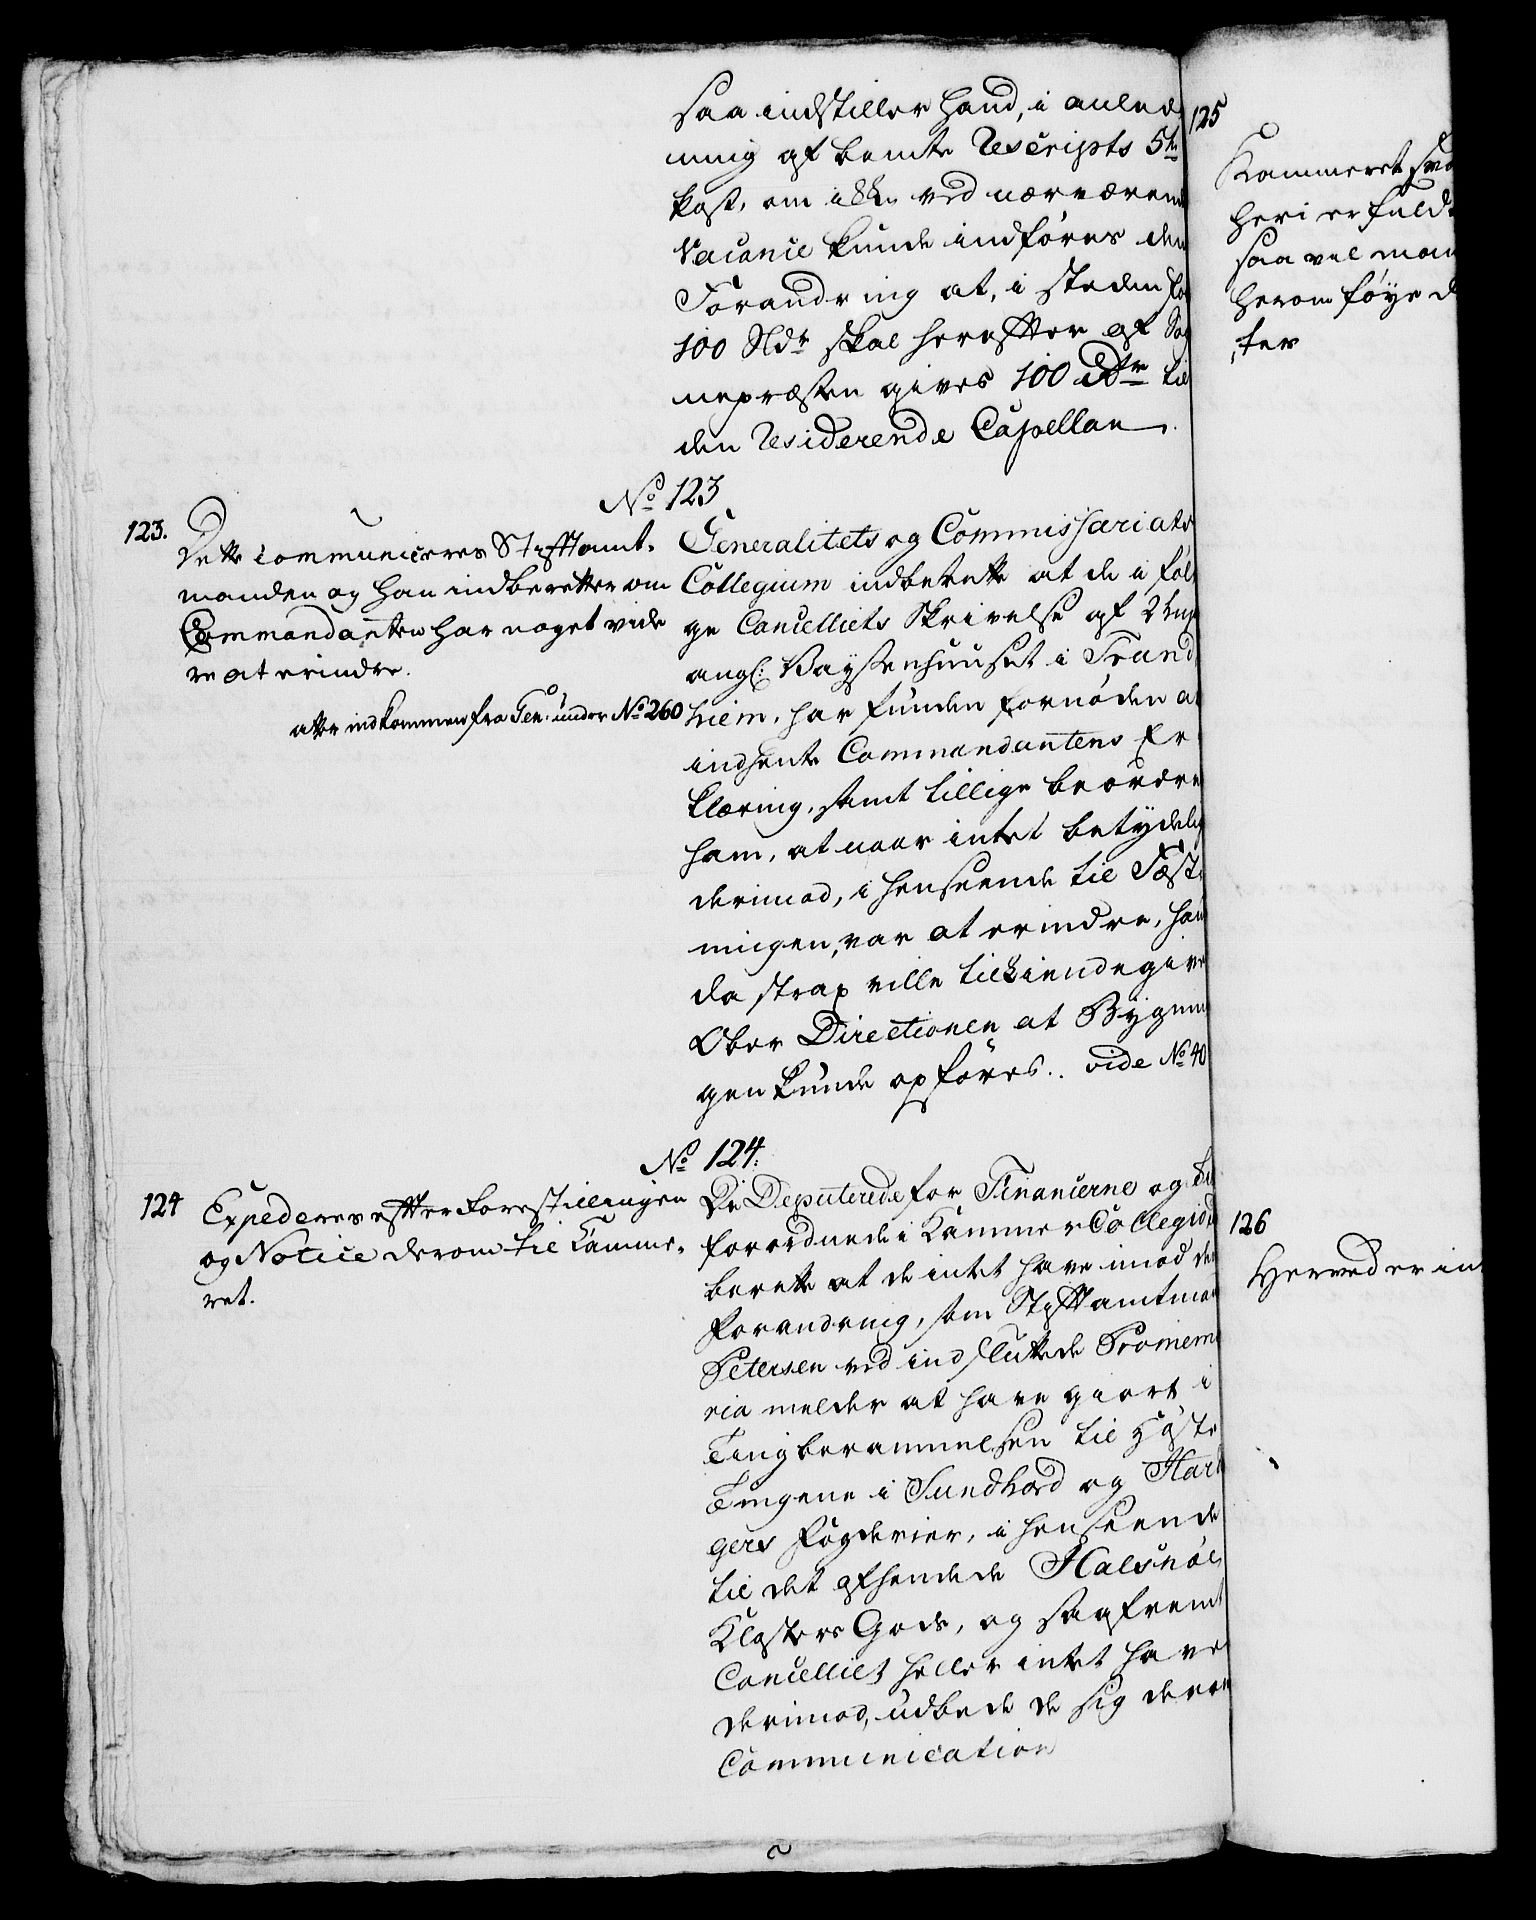 saa indstiller hand, i anled
ning af bemte Rescripts 5te
Post, om ikke ved nærværen
Vacance kunde indføres den
Forandring at, i steden for
100 Sldr skal herefter af Sog
nepræsten gives 100 Rdr til
den Residerende Capellan.
No 123
123.
Dette communiceres Stiftamt-
manden og han indberetter om
Commandanten har noget vide
re at erindre.
atter indkommen fra Gen: under No 260
Generalitets og Commissariats
Collegium indberette at de iføl
ge Cancelliets Skrivelse af
angl: Bøyssenhuuset i Trund
hiem, har funden fornøden at
indhente Commandantens Er
klæring, samt tillige beordre
ham, at naar intet betydelig
derimod, i henseende til Fæst
ningen, var at erindre, han
da strax ville tilkiendegive
Ober Directionen at Bygnin
gen kunde opføres. vide No 40
No 124.
124
Expederes efter forestillingen
og Notice derom til Camme-
ret.
De Deputerede for Financerne og
forordnede i Kammer Collegio
berette at de intet have imod de
forandring, som Stiftamtman
Petersen ved indsluttede Promemo
ria melder at have giort i
Tingberammelsen til Høste
Tingene i Sundhord og Har
gers fogderier, i henseende
til det afhendede Halsnöe
Klosters Gods, og saafremt
Cancelliet heller intet have
derimod, udbede de sig derom
Communication
125
Kammeret
heri er fuld
saa vel man
herom føye
ter
126
Herved er in